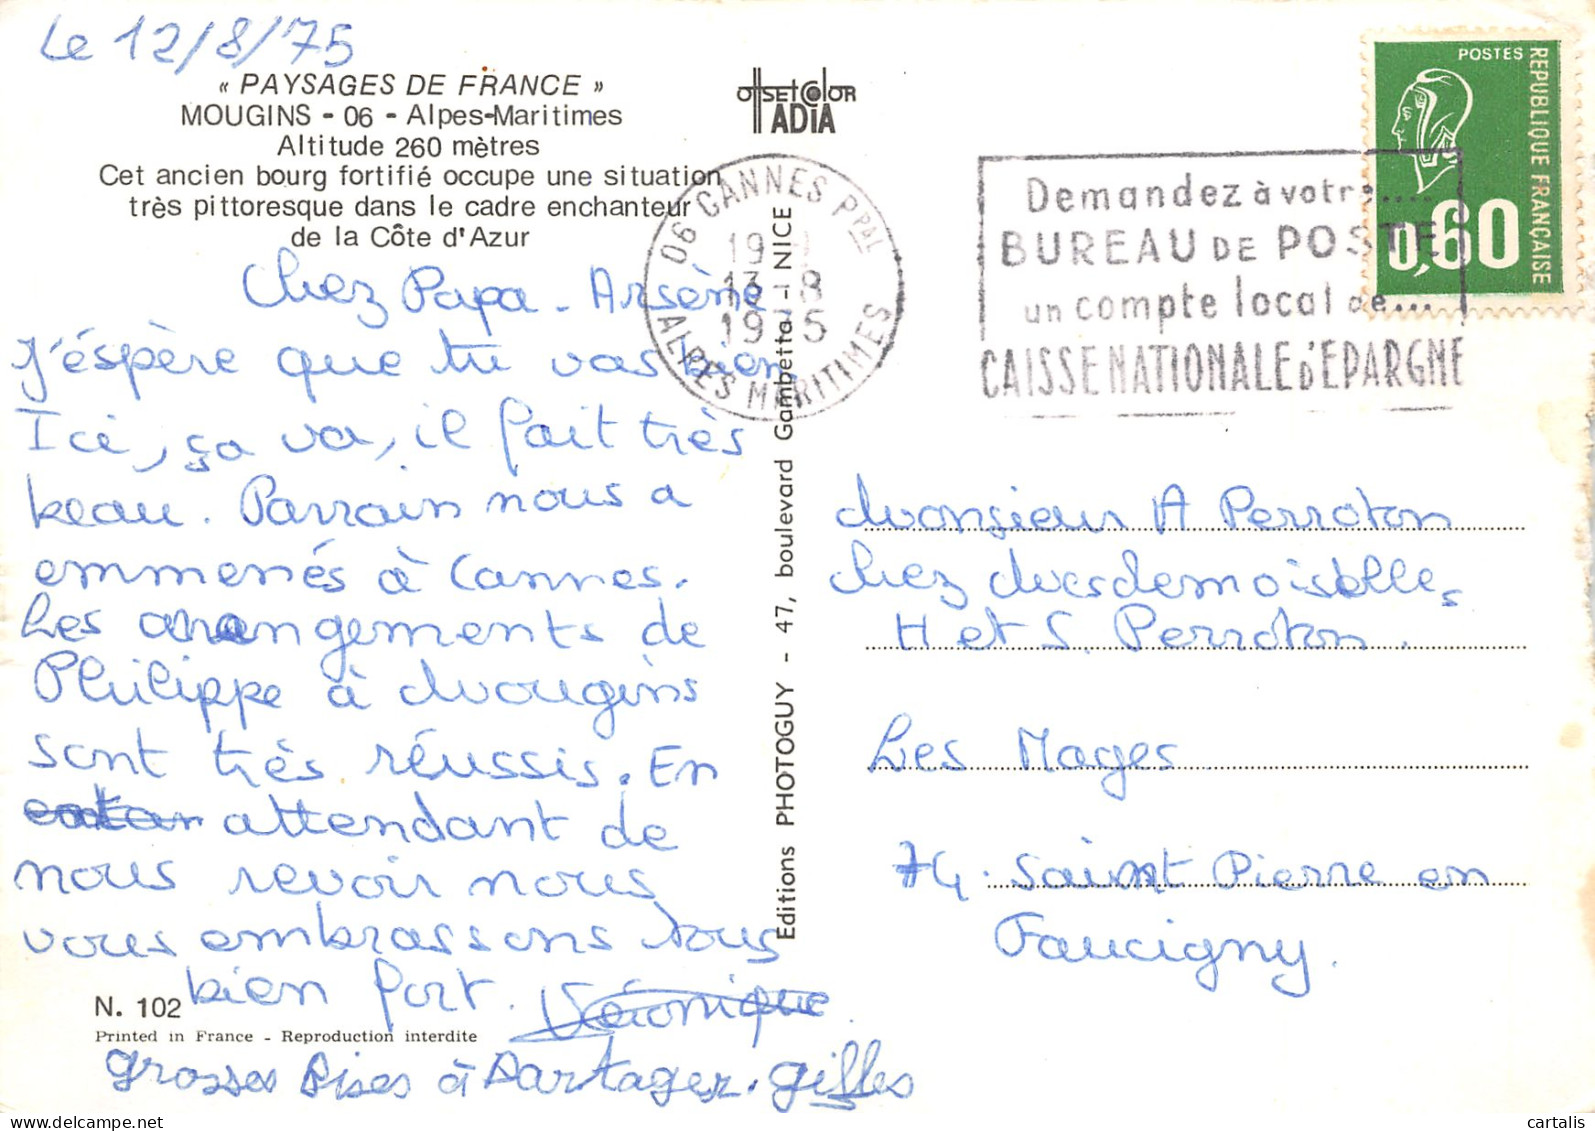 Le 12/8/75
« PAYSAGES DE FRANCE »
MOUGINS - 06 - Alpes-Maritimes
Altitude 260 mètres
Cet ancien bourg fortifié occupe une situation
très pittoresque dans le cadre enchanteur
de la Côte d'Azur
Chez Papa - Arsène
J'éspère que tu vas bien
Ici, ça va, il fait très
beau. Parrain nous a
emmenés à Cannes.
Les arrangements de
Philippe à Mougins
sont très réussis. En
attendant de
nous revoir nous
vous embrassons tous
bien fort. Véronique
grosses Bises à Partager. gilles
N. 102
Printed in France - Reproduction interdite
offset color
ADIA
Editions PHOTOGUY - 47, boulevard Gambetta - NICE
06 CANNES PPAL
19 H
13 - 8
1975
ALPES MARITIMES
Demandez à votre....
BUREAU DE POSTE
un compte local de...
CAISSE NATIONALE D'EPARGNE
POSTES
REPUBLIQUE FRANÇAISE
0,60
Monsieur A Perroton
Chez Mesdemoiselles
H et S. Perroton.
Les Mages
74. Saint Pierre en
Faucigny.
cartalis
delcampe.net